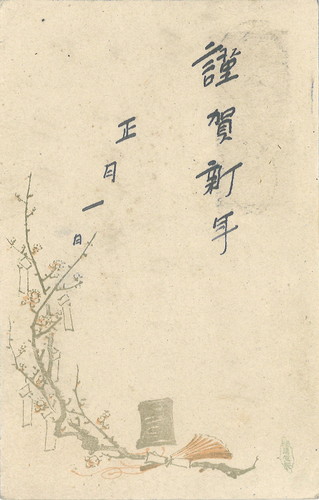 謹賀新年
正月一日